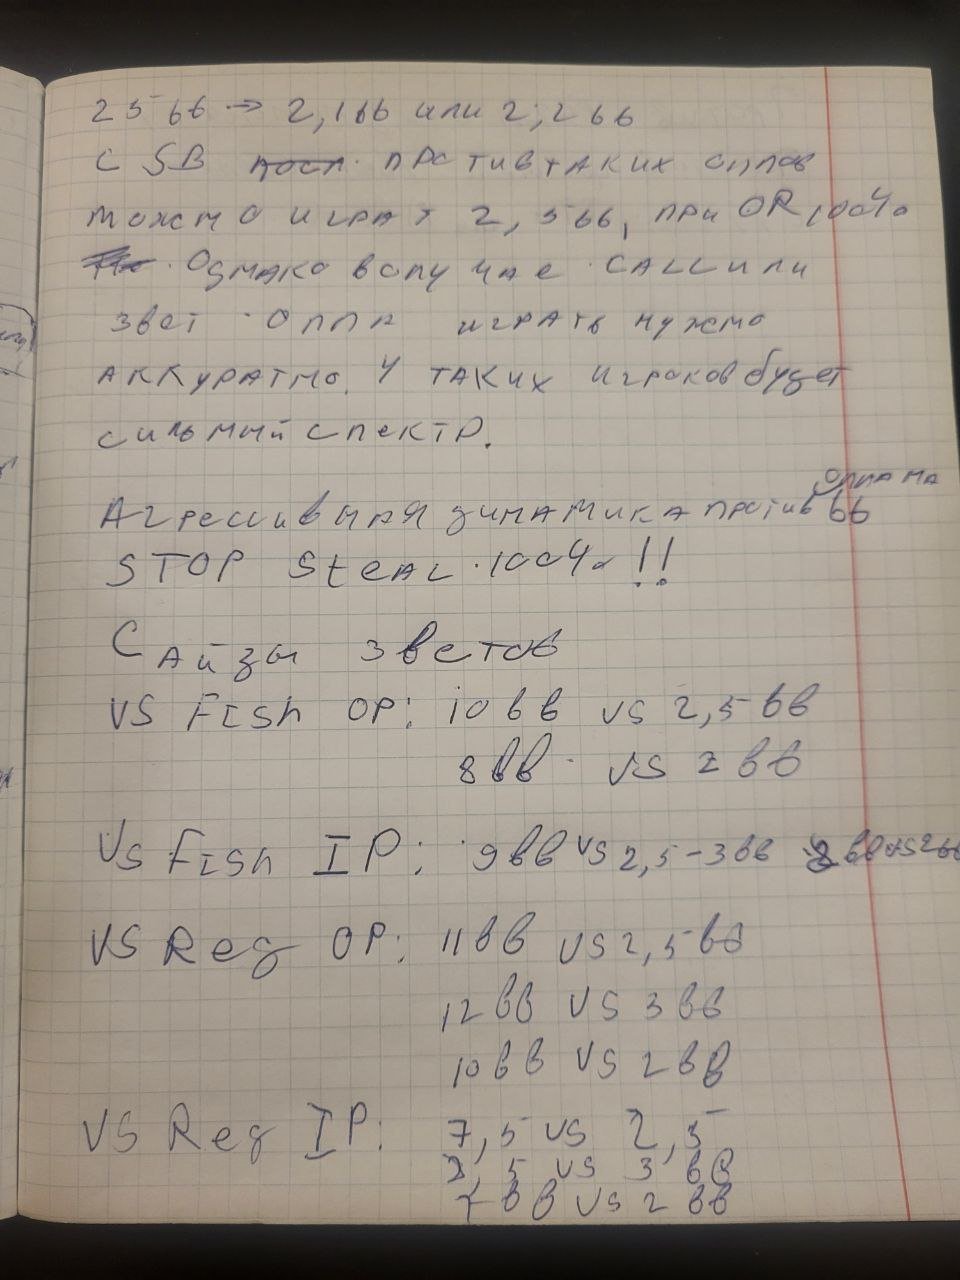 25 bb → 2,1bb или 2,2 bb
с SB против таких оппов
можно играт 2,5bb, при OR 100%
Однако в случае CALL или
3бет оппа играть нужно
аккуратно. У таких игроков будет
сильный спектр.
Агрессивная динамика против оппа на bb
STOP Steal 100% !!
Сайзы 3бетов
VS Fish OP: 10 bb vs 2,5 bb
8bb vs 2 bb
Vs Fish IP: 9bb vs 2,5-3bb 8 bb vs 2 bb
VS Reg OP: 11 bb vs 2,5 bb
12 bb vs 3 bb
10 bb vs 2 bb
VS Reg IP: 7,5 vs 2,5
5 vs 3 bb
7 bb vs 2 bb